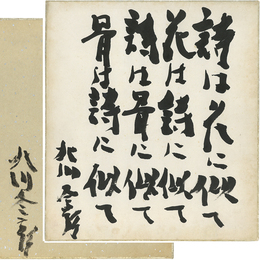 詩は花に似て
花は詩に似て
詩は骨に似て
骨は詩に似て
北川冬彦
北川冬彦